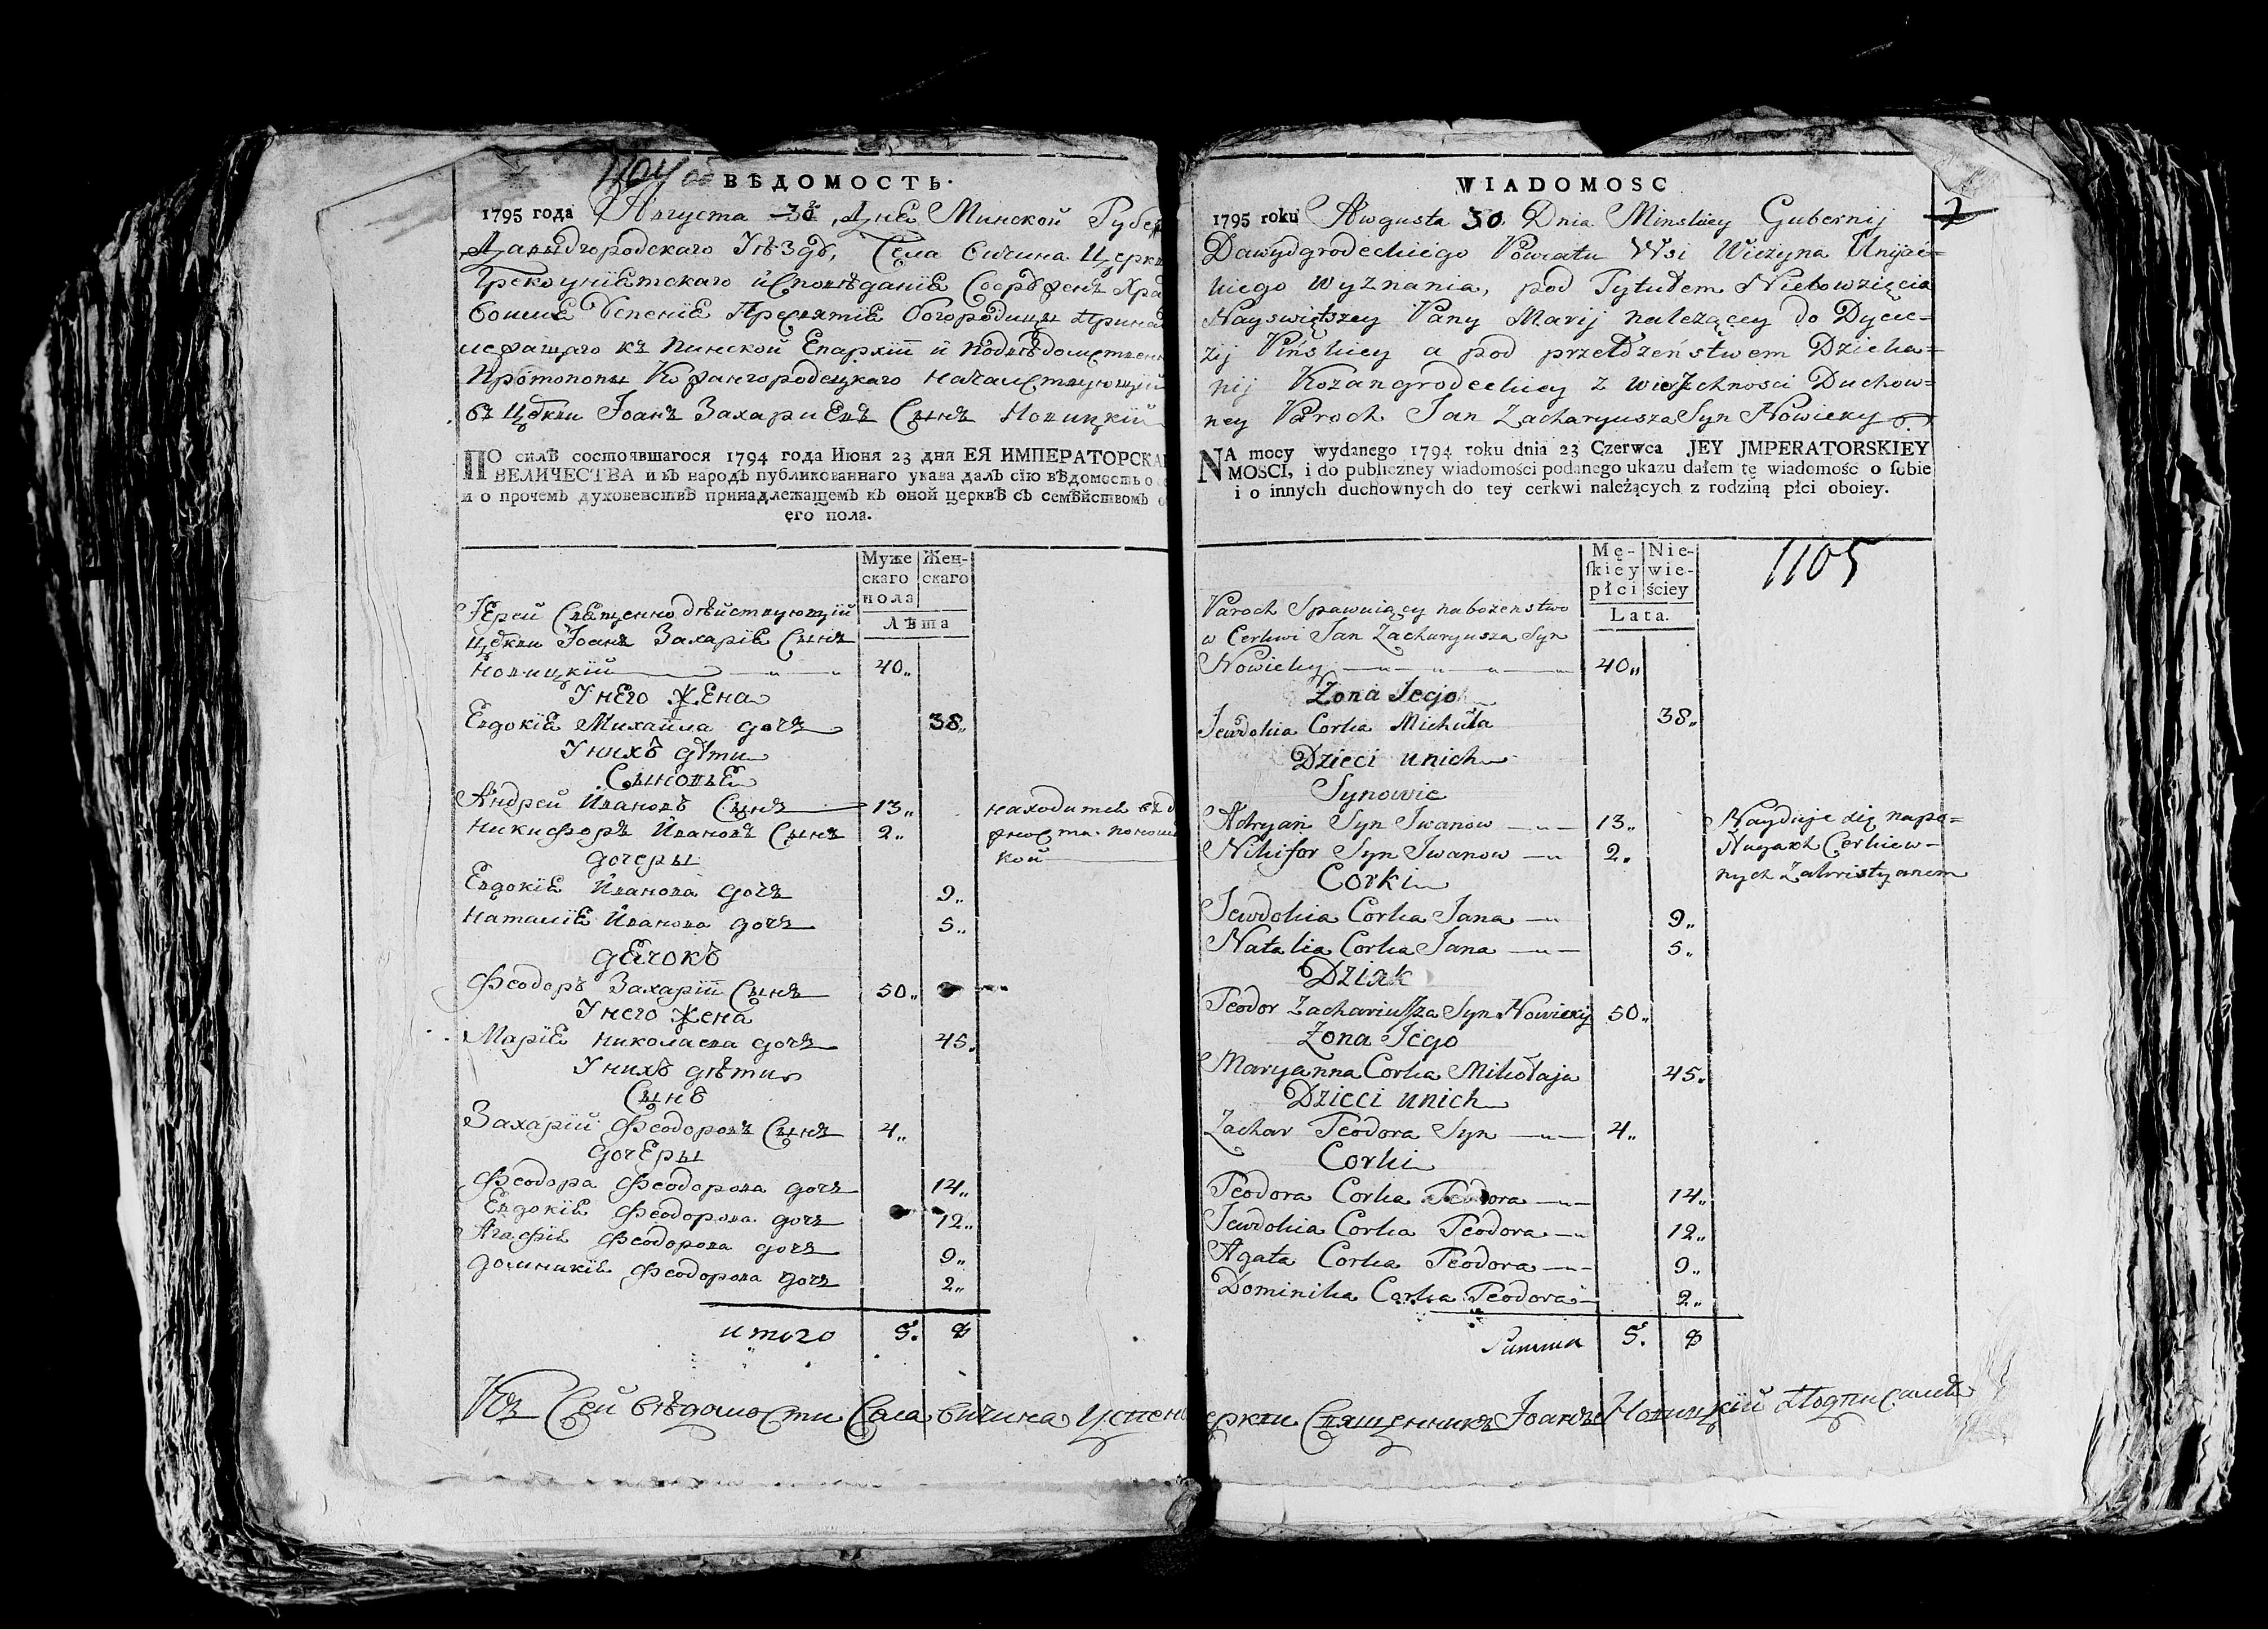 ВѢДОМОСТЬ.
1795 года Августа 30 Дня Минской Губе
Давыдгородскаго Уѣзда, Села Вичина Церкви
Грекоуніятскаго исповѣданіе
Успеніе Пресвятіе Богородицы
къ Пинской Епархіи и
Протопопы Кожангородецкаго
въ Цркви Іоанъ Захариевъ Сынъ Новицкій
ПО силѣ состоявшагося 1794 года Июня 23 дня ЕЯ ИМПЕРАТОРСКА
ВЕЛИЧЕСТВА и въ народъ публикованнаго указа далъ сїю вѣдомость о
и о прочемъ духовенствѣ принадлежащемъ къ оной церквѣ съ семѣйствомъ о
его пола.
Муже
скаго
пола
Жен-
скаго
Лѣта
Іерей Священнодѣйствующій
Цркви Іоанъ Захаріевъ Сынъ
Новицкій 40„
У него Жена
Евдокіе Михайла дочъ 38„
У нихъ дѣти
Сыновье
Андрей Ивановъ Сынъ 13„ находится въ д
Никифоръ Ивановъ Сынъ 2„
кой
дочеры
Евдокіе Иванова дочъ 9„
Наталіе Иванова дочъ 5„
дечокъ
Феодоръ Захарій Сынъ 50„
У него Жена
Маріе Николаева дочъ 45„
У нихъ дѣти
Сынъ
Захарій Феодоровъ Сынъ 4„
дочеры
Феодора Феодорова дочъ 14„
Евдокіе Феодорова дочъ 12„
Агафіе Феодорова дочъ 9„
Доминикіе Феодорова дочъ 2„
итого 5. 8
Къ Сей вѣдомости Села Вичина Успен
WIADOMOSC
1795 roku Awgusta 30 Dnia Minskiey Gubernij
Dawydgrodeckiego Powiatu Wsi Wiczyna Unijac=
kiego Wyznania, pod Tytułem Niebowzięcia
Nayswiętszey Panny Marij nalezącey do Dyce-
zij Pińskiey a pod przełdzeństwem Dzieka=
nij Kozangrodeckiey z wierzchnosci Duchow=
ney Paroch Jan Zacharyusza Syn Nowicky
NA mocy wydanego 1794 roku dnia 23 Czerwca JEY JMPERATORSKIEY
MOSCI, i do publiczney wiadomości podanego ukazu dałem tę wiadomość o sobie
i o innych duchownych do tey cerkwi należących z rodziną płci oboiey.
Mę-
skiey
płci
Nie-
wie-
ściey
Lata.
1105
Paroch Spawuiący nabozenstwo
w Cerkwi Jan Zacharyusza Syn
Nowicky 40„
Zona Jego
Jewdokia Corka Michała 38„
Dzieci unich
Synowie
Adryan Syn Iwanow 13„ Nayduje się napo=
Nikifor Syn Iwanow 2„ Cerkiew-
nych Zakristyanem
Corki
Jewdokia Corka Jana 9„
Natalia Corka Jana 5„
Dziak
Teodor Zachariusza Syn Nowicky 50„
Zona Jego
Maryanna Corka Mikołaja 45„
Dzieci unich
Zachar Teodora Syn 4„
Corki
Teodora Corka Teodora 14„
Jewdokia Corka Teodora 12„
Agata Corka Teodora 9„
Dominika Corka Teodora 2„
Summa 5. 8
еркви Священникъ Іоанъ Новицкій Подписался